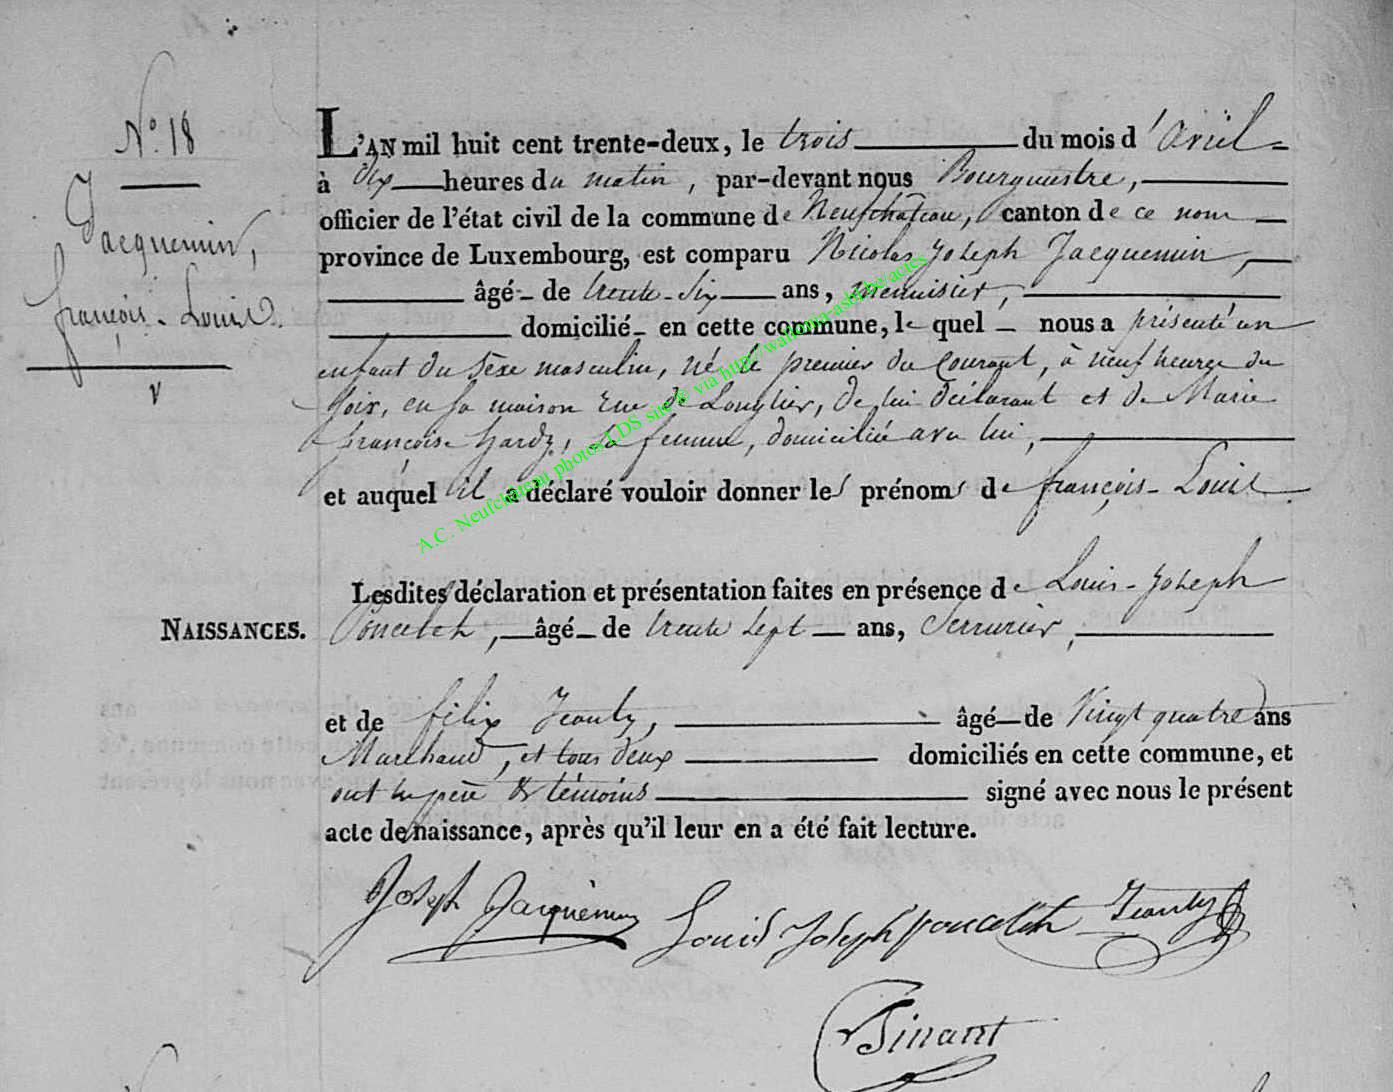 N.º 18
Jacquemin,
françois-Louis.
L'AN mil huit cent trente-deux, le trois du mois d'avril
à dix heures du matin, par-devant nous Bourgmestre,
officier de l'état civil de la commune de Neufchâteau, canton de ce nom
province de Luxembourg, est comparu Nicolas Joseph Jacquemin,
âgé de trente-six ans, menuisier,
domicilié en cette commune, lequel nous a présenté un
enfant du sexe masculin, né le premier du Courant, à neuf heures du
soir, en sa maison rue de Longlier, de lui déclarant et de Marie
françoise hardy, sa femme, domiciliée avec lui,
et auquel il a déclaré vouloir donner les prénoms de françois-Louis
Lesdites déclaration et présentation faites en présence de Louis-Joseph
NAISSANCES. Poncelet, âgé de trente sept ans, Serrurier,
et de félix Jeanty, âgé de Vingt quatre ans
Marchand, et tous deux domiciliés en cette commune, et
ont le père & témoins signé avec nous le présent
acte de naissance, après qu'il leur en a été fait lecture.
Joseph Jacquemin Louis Joseph poncelet Jeanty
Binant
A.C. Neufchâteau photos LDS site © via http://wallonia-asbl.be/actes